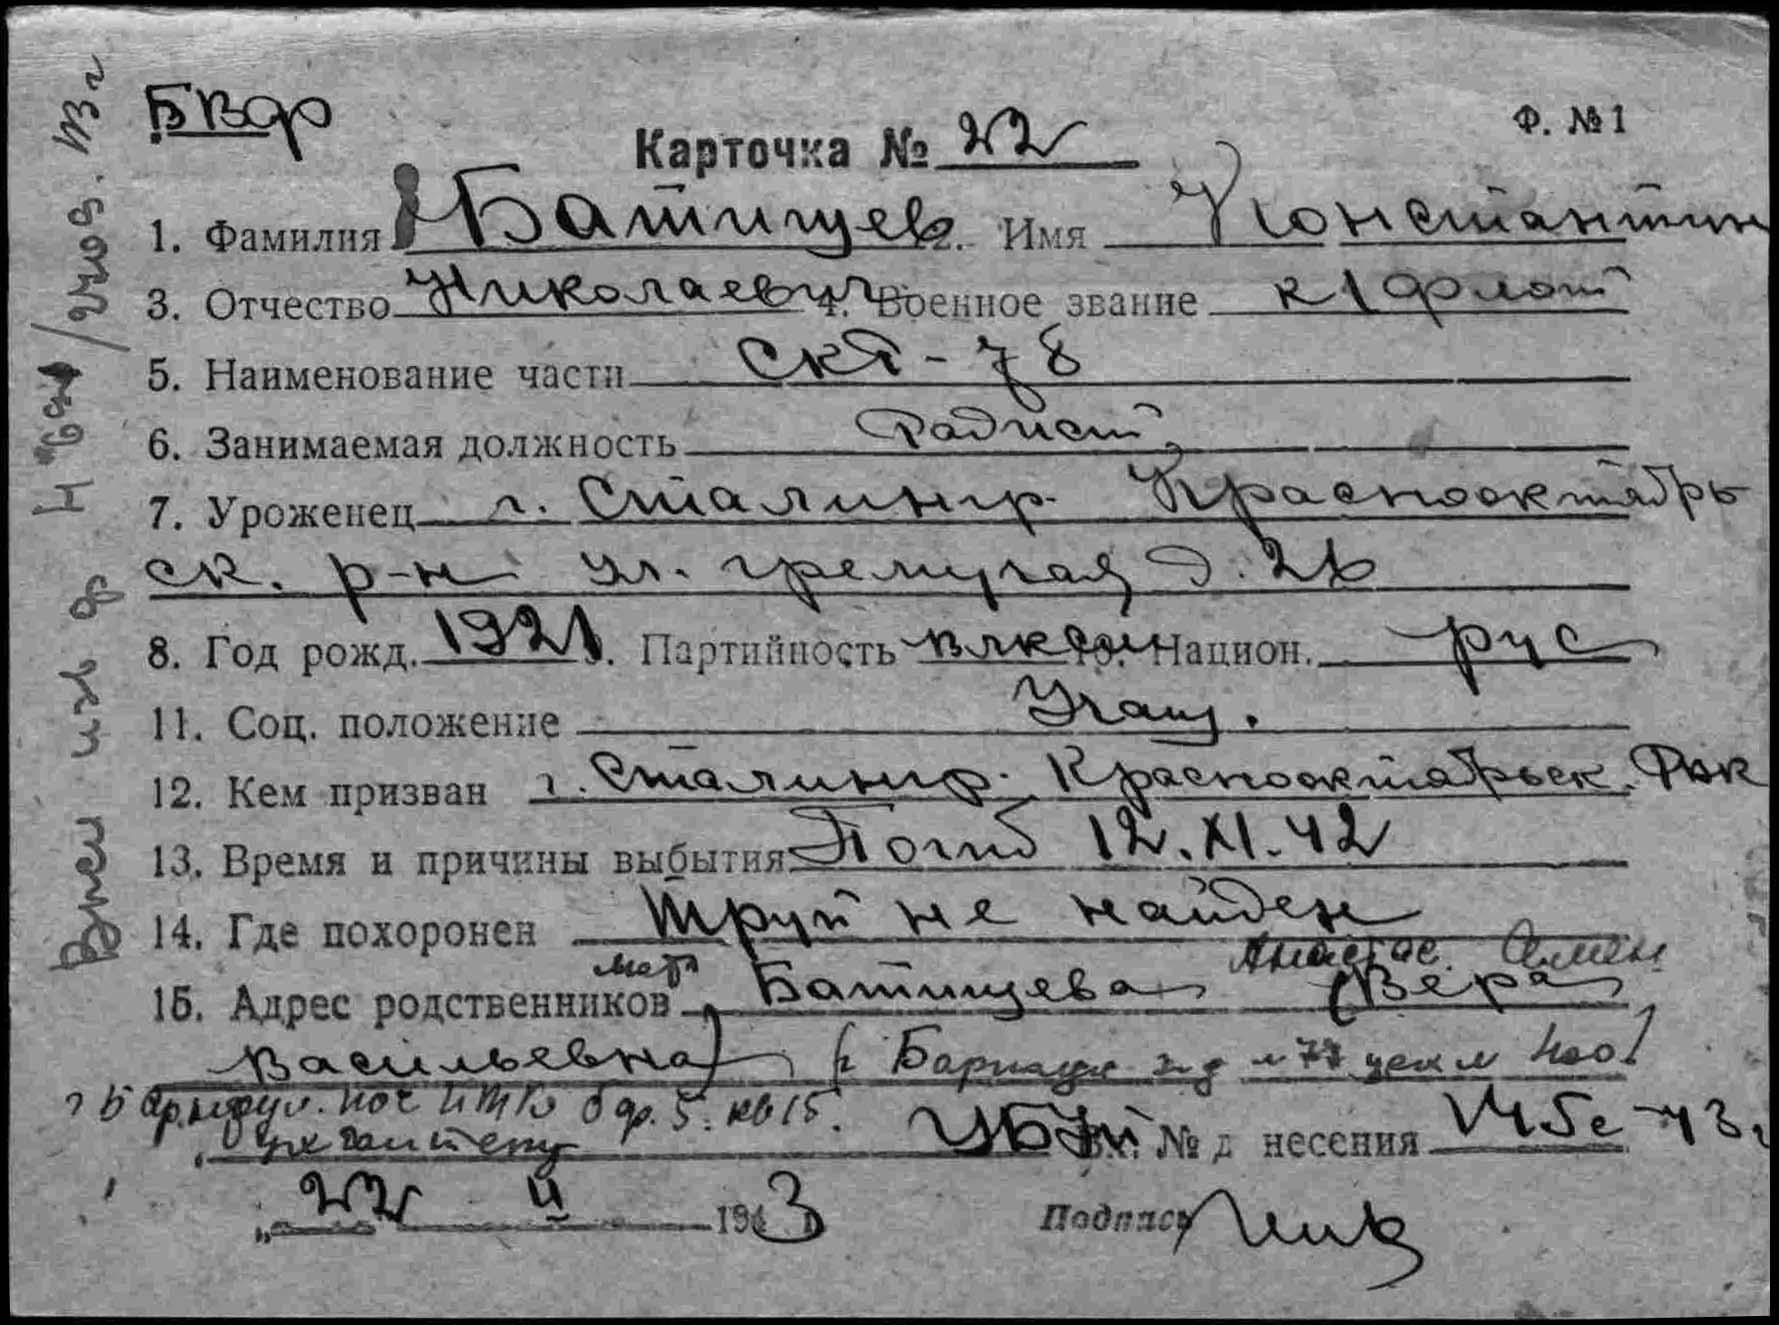 БВФ
Ф. №1
Карточка № 22
1. Фамилия Батищев 2. Имя Константин
3. Отчество Николаевич 4. Военное звание к 1 флот
5. Наименование части СКА-78
6. Занимаемая должность Радист
7. Уроженец г. Сталингр. Краснооктябрь
ск. р-н ул. гремучая д. 26
8. Год рожд. 1921 9. Партийность влксм 10. Национ. рус
11. Соц. положение Учащ.
12. Кем призван г. Сталингр. Краснооктябрьск. РВК
13. Время и причины выбытия Погиб 12.XI.42
14. Где похоронен труп не найден
Анастас. Семен
15. Адрес родственников мать Батищева (Вера
Васильевна) г Барнаул з-д №77 цех №
г Барнаул. пос б др. 5. кв 15.
Вх. № донесения 1456 43г
„ 22 II 1943 Подпись